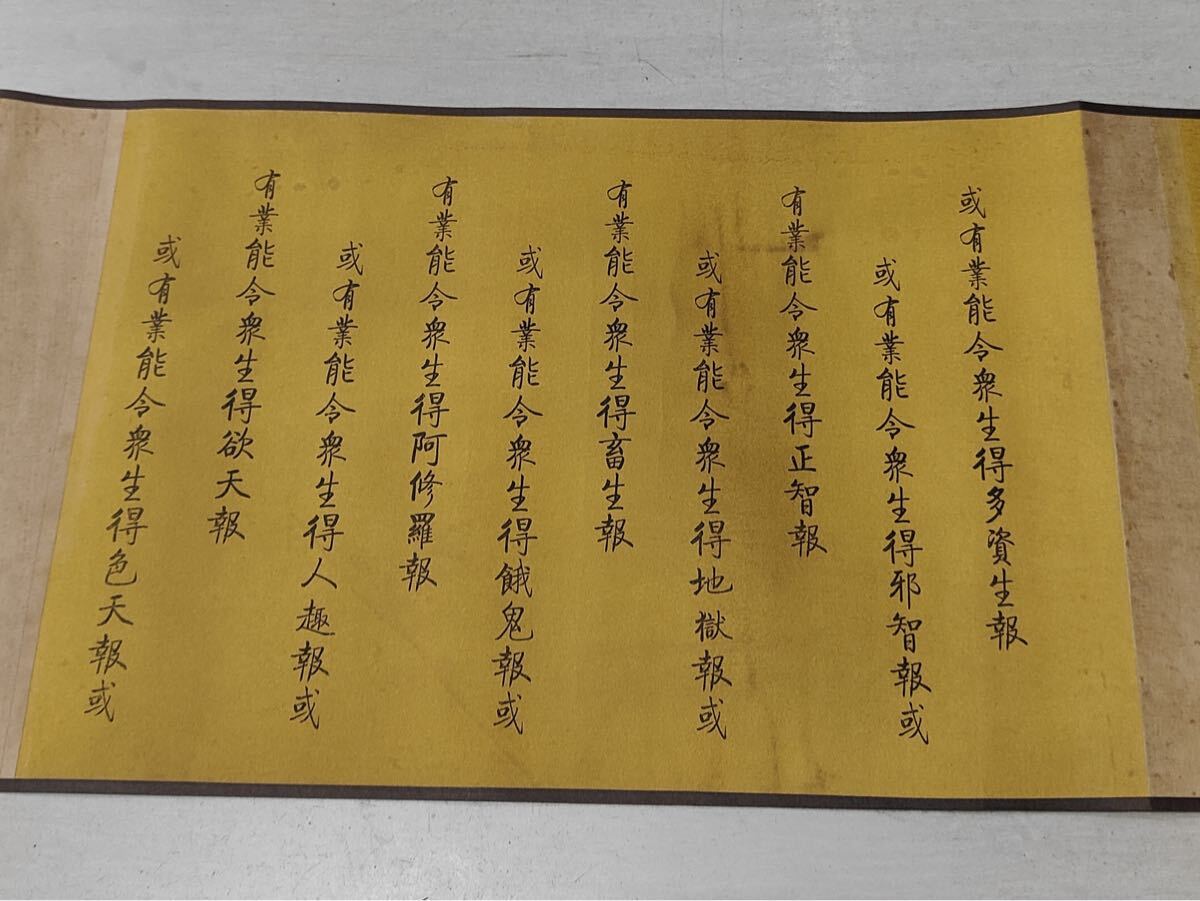 或有業能令衆生得多資生報
或有業能令衆生得邪智報或
有業能令衆生得正智報
或有業能令衆生得地獄報或
有業能令衆生得畜生報
或有業能令衆生得餓鬼報或
有業能令衆生得阿修羅報
或有業能令衆生得人趣報或
有業能令衆生得欲天報
或有業能令衆生得色天報或